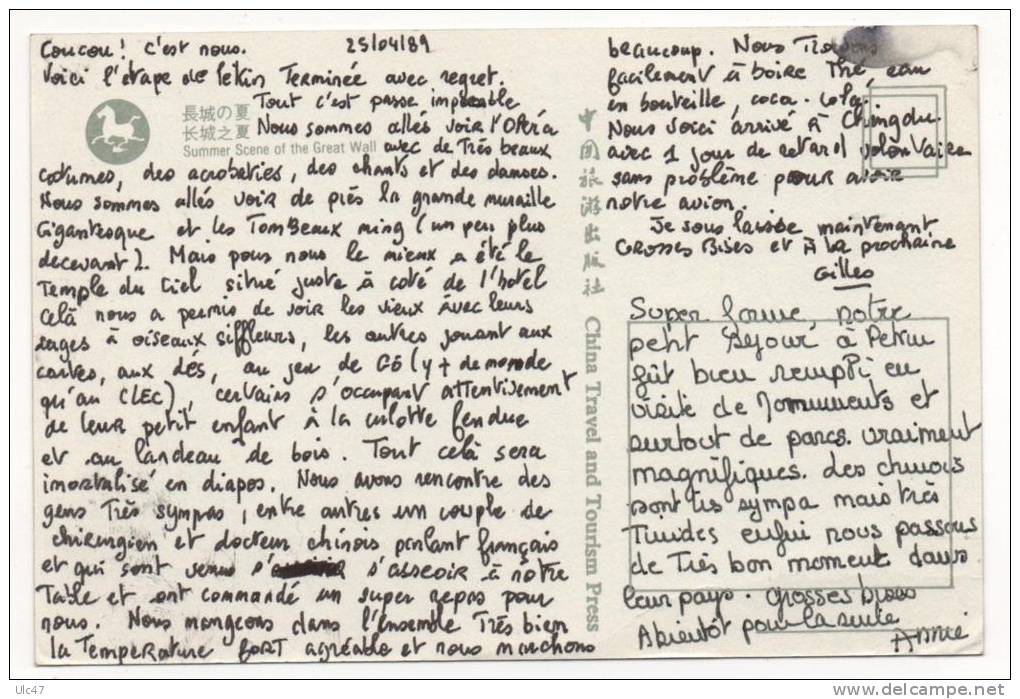 Coucou! C'est nous. 25/04/89
Voici l'étape de Pekin Terminée avec regret.
Tout c'est passe impecable
Nous sommes allés voir l'Opéra
avec de Très beaux
costumes, des acrobaties, des chants et des danses.
Nous sommes allés voir de près la grande muraille
Gigantesque et les Tombeaux ming (un peu plus
decevant). Mais pour nous le mieux a été le
Temple du Ciel situé juste à coté de l'hotel
Celà nous a permis de voir les vieux avec leurs
cages à oiseaux siffleurs, les autres jouant aux
cartes, aux dés, au jeu de Gô (y + de monde
qu'au CLEC), certains s'occupant attentivement
de leur petit enfant à la culotte fendue
et au landeau de bois. Tout celà sera
imortalisé en diapos. Nous avons rencontré des
gens Très sympas, entre autres un couple de
chirurgien et docteur chinois parlant français
et qui sont venus s'asseoir à nôtre
Table et ont commandé un super repas pour
nous. Nous mangeons dans l'ensemble Très bien
la Temperature FORT agréable et nous marchons
長城の夏
长城之夏
Summer Scene of the Great Wall
中国旅游出版社 China Travel and Tourism Press
beaucoup. Nous Trouvons
facilement à boire Thé, eau
en bouteille, coca-cola.
Nous voici arrivé à Chingdu
avec 1 jour de retard volontaire
sans problème pour avoir
notre avion.
Je vous laisse maintenant
GROSSES Bises et à la prochaine
Gilles
Super forme, notre
petit séjour à Pekin
fût bien rempli en
visite de monuments et
surtout de parcs vraiment
magnifiques. les chinois
sont très sympa mais très
Timides enfin nous passons
de Très bon moment dans
leur pays. Grosses bises
A bientôt pour la suite
Annie
Ulc47
delcampe.net